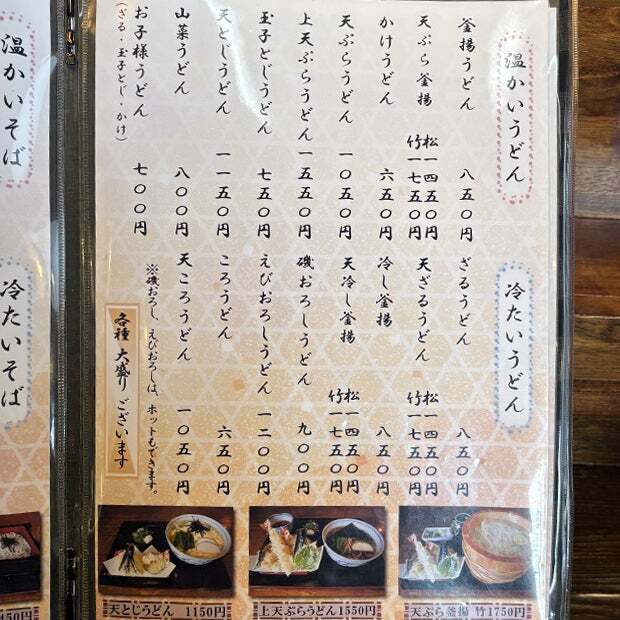 温かいうどん
釜揚うどん 八五〇円
天ぷら釜揚 松一四五〇円
竹一七五〇円
かけうどん 六五〇円
天ぷらうどん 一〇五〇円
上天ぷらうどん 一五五〇円
玉子とじうどん 七五〇円
天とじうどん 一一五〇円
山菜うどん 八〇〇円
お子様うどん 七〇〇円
(ざる・玉子とじ・かけ)
冷たいうどん
ざるうどん 八五〇円
天ざるうどん 松一四五〇円
竹一七五〇円
冷し釜揚 八五〇円
天冷し釜揚 松一四五〇円
竹一七五〇円
磯おろしうどん 九〇〇円
えびおろしうどん 一二〇〇円
ころうどん 六五〇円
天ころうどん 一〇五〇円
※磯おろし、えびおろしは、ホットもできます。
各種 大盛り ございます
温かいそば
冷たいそば
天とじうどん 1150円
上天ぷらうどん 1550円
天ぷら釜揚 竹1750円
450円